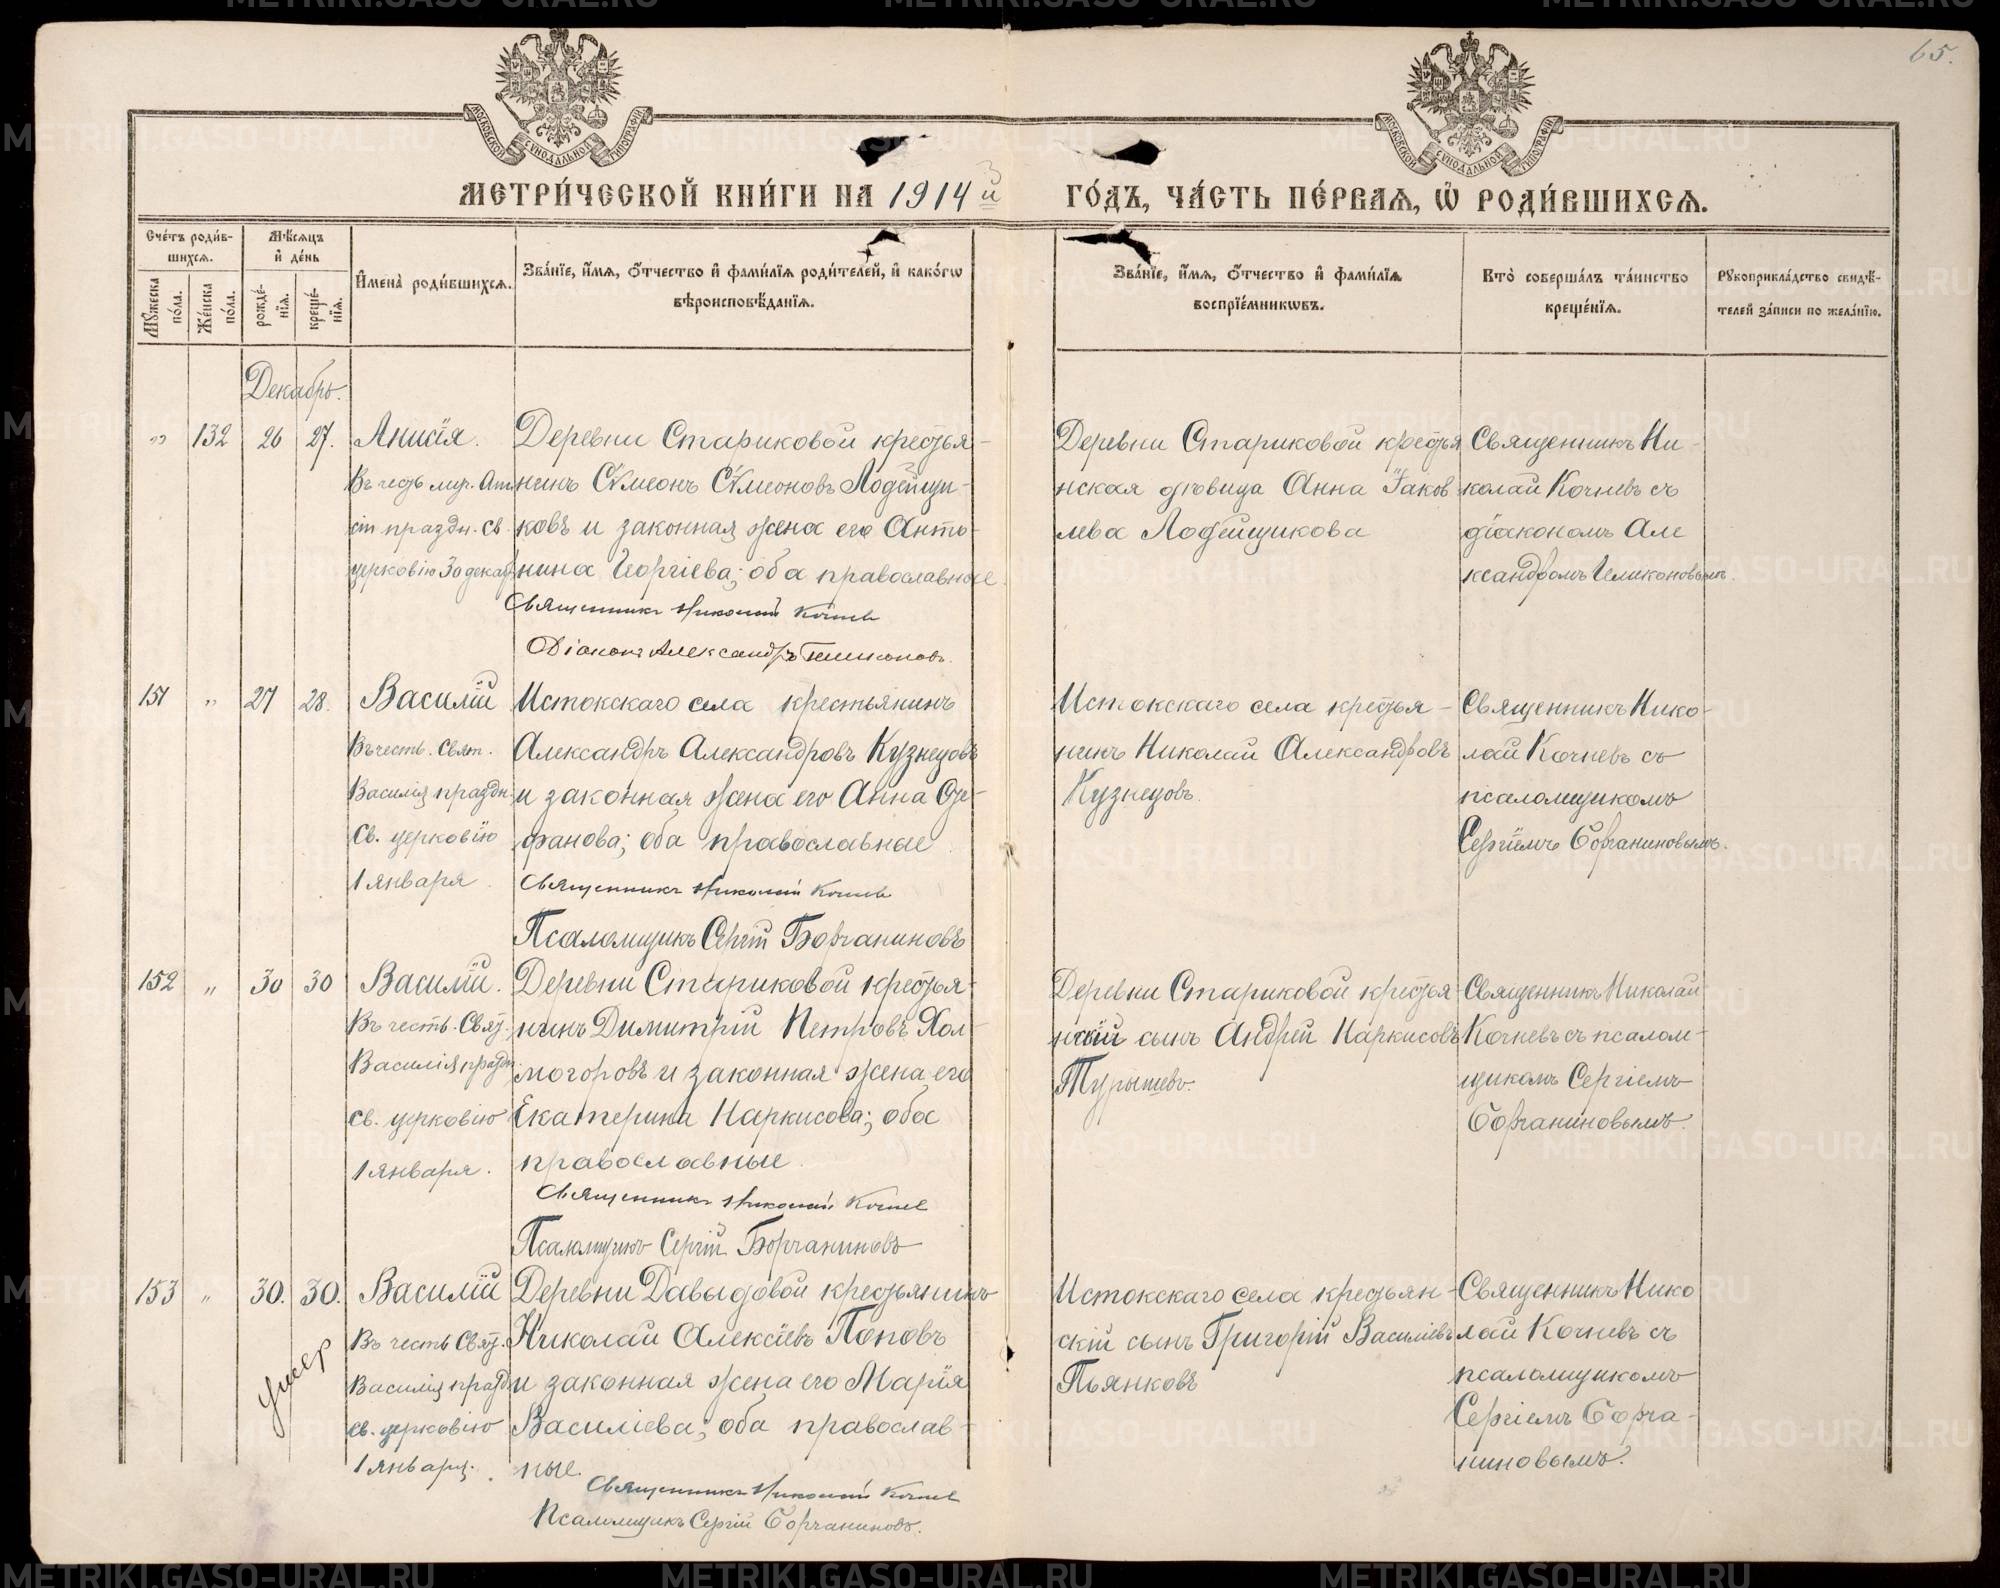 65.
МОСКОВСКОЙ СѴНОДАЛЬНОЙ ТИПОГРАФІИ
МОСКОВСКОЙ СѴНОДАЛЬНОЙ ТИПОГРАФІИ
МЕТРИ́ЧЕСКОЙ КНИ́ГИ НА 1914 й ГО́ДЪ, ЧА́СТЬ ПЕ́РВАЯ, Ѡ РОДИ́ВШИХСЯ.
Сче́тъ роди́в-
шихся.
Му́жеска по́ла.
Же́нска по́ла.
Мѣ́сяцъ
и де́нь
рожде́нія.
креще́нія.
Имена̀ роди́вшихся.
Зва́ніе, и́мя, о́тчество и фами́лія роди́телей, и како́гѡ
вѣроисповѣ́данія.
Зва́ніе, и́мя, о́тчество и фами́лія
воспріе́мникѡвъ.
Кто̀ соверша́лъ та́инство
креще́нія.
Рукоприкла́дство свидѣ́-
телей за́писи по жела́нію.
Декабрь.
„ 132 26 27.
Анисія.
Въ честь муч. Ани
сіи праздн. св.
церковію 30 декаб.
Деревни Стариковой крестья-
нинъ Сѵмеонъ Сѵмеоновъ Лодейщи-
ковъ и законная жена его Анто-
нина Георгіева; оба православные.
Священникъ Николай Кочнев
Діаконъ Александръ Геликоновъ.
Деревни Стариковой крестья
нская дѣвица Анна Іаков
лева Лодейщикова
Священникъ Ни-
колай Кочневъ съ
діакономъ Але
ксандромъ Геликоновымъ.
151 „ 27 28.
Василій
Въ честь. Свят.
Василія праздн.
св. церковію
1 января.
Истокскаго села крестьянинъ
Александръ Александровъ Кузнецовъ
и законная жена его Анна Сте-
фанова; оба православные.
Священникъ Николай Кочнев
Псаломщикъ Сергій Борчаниновъ
Истокскаго села крестья-
нинъ Николай Александровъ
Кузнецовъ.
Священникъ Нико-
лай Кочневъ съ
псаломщикомъ
Сергіемъ Борчаниновымъ.
152 „ 30 30
Василій.
Въ честь. Свят.
Василія праздн.
св. церковію
1 января.
Деревни Стариковой крестья-
нинъ Димитрій Петровъ Хол-
могоровъ и законная жена его
Екатерина Наркисова; оба
православные.
Священникъ Николай Кочнев
Псаломщикъ Сергій Борчаниновъ
Деревни Стариковой крестья-
нскій сынъ Андрей Наркисовъ
Турышевъ.
Священникъ Николай
Кочневъ съ псалом-
щикомъ Сергіемъ
Борчаниновымъ.
153 „ 30. 30.
умер
Василій
Въ честь Свят.
Василія праздн
св. церковію
1 января.
Деревни Давыдовой крестьянинъ
Николай Алексіевъ Поповъ
и законная жена его Марія
Василіева; оба православ-
ные.
Священникъ Николай Кочнев
Псаломщикъ Сергій Борчаниновъ.
Истокскаго села крестьян-
скій сынъ Григорій Василіевъ
Пьянковъ
Священникъ Нико
лай Кочневъ съ
псаломщикомъ
Сергіемъ Борча-
ниновымъ.
METRIKI.GASO-URAL.RU